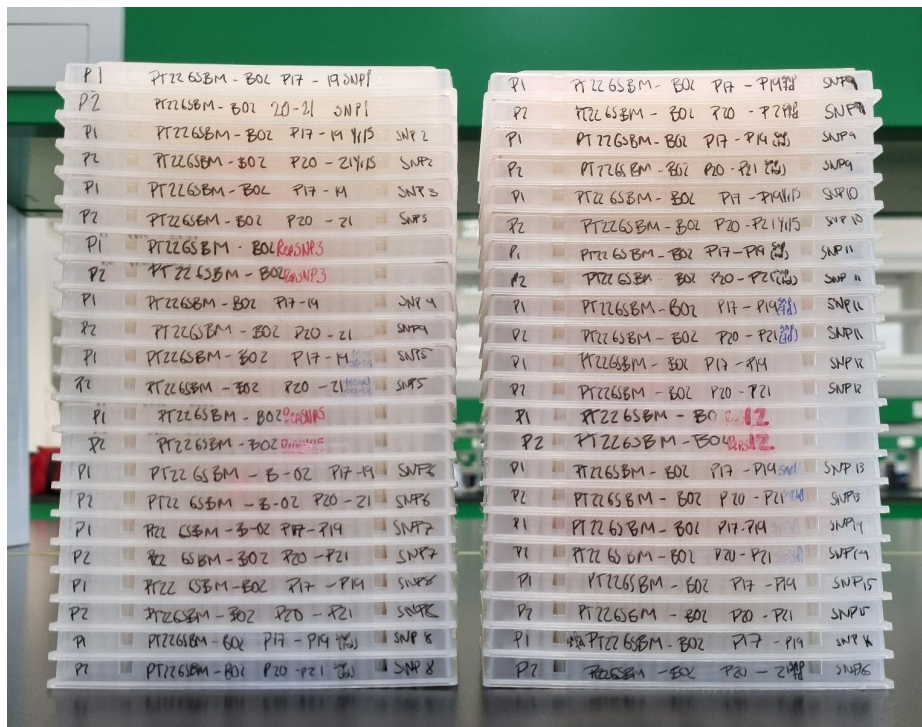 P1 PT22 GSBM - B02 P17 - 19 SNP1
P2 PT22GSBM - B02 20-21 SNP1
P1 PT22GSBM - B02 P17-19 1/15 SNP2
P2 PT22GSBM - B02 P20 - 21 1/15 SNP2
P1 PT22GSBM - B02 P17 - 19 SNP3
P2 PT22GSBM - B02 P20 - 21 SNP3
P1 PT22GSBM - B02 RepSNP3
P2 PT22GSBM - B02 RepSNP3
P1 PT22GSBM - B02 P17-19 SNP4
P2 PT22GSBM - B02 P20-21 SNP4
P1 PT22GSBM - B02 P17-19 SNP5
P2 PT22GSBM - B02 P20 - 21 SNP5
P1 PT22GSBM - B02 RepSNP5
P2 PT22GSBM - B02
P1 PT22 GSBM - B-02 P17-19 SNP6
P2 PT22 GSBM - B-02 P20 - 21 SNP6
P1 PT22 GSBM - B-02 P17-P19 SNP7
P2 PT22 GSBM - B02 P20 - P21 SNP7
P1 PT22 GSBM - B02 P17 - P19
P2 PT22GSBM - B02 P20 - P21
P1 PT22GSBM - B02 P17 - P19 SNP8
P2 PT22GSBM - B02 P20 - P21 SNP8
P1 PT22GSBM - B02 P17 - P19 SNP9
P2 PT22GSBM - B02 P20 - P21 SNP9
P1 PT22GSBM - B02 P17 - P19 SNP9
P2 PT22GSBM - B02 P20 - P21 SNP9
P1 PT22GSBM - B02 P17 - P19 1/15 SNP10
P2 PT22GSBM - B02 P20 - P21 1/15 SNP10
P1 PT22GSBM - B02 P17 - P19 SNP11
P2 PT22GSBM B02 P20 - P21 SNP11
P1 PT22GSBM - B02 P17 - P19 SNP11
P2 PT22GSBM - B02 P20 - P21 SNP11
P1 PT22GSBM - B02 P17 - P19 SNP12
P2 PT22GSBM - B02 P20 - P21 SNP12
P1 PT22GSBM - B0 12
P2 PT22GSBM - B02 12
P1 PT22GSBM - B02 P17 - P19 SNP13
P2 PT22GSBM - B02 P20 - P21 SNP13
P1 PT22GSBM - B02 P17-P19 SNP14
P2 PT22GSBM - B02 P20 - P21 SNP14
P1 PT22GSBM - B02 P17 - P19 SNP15
P2 PT22GSBM - B02 P20 - P21 SNP15
P1 PT22GSBM - B02 P17 - P19 SNP16
P2 PT22GSBM - B02 P20 - 21 SNP16